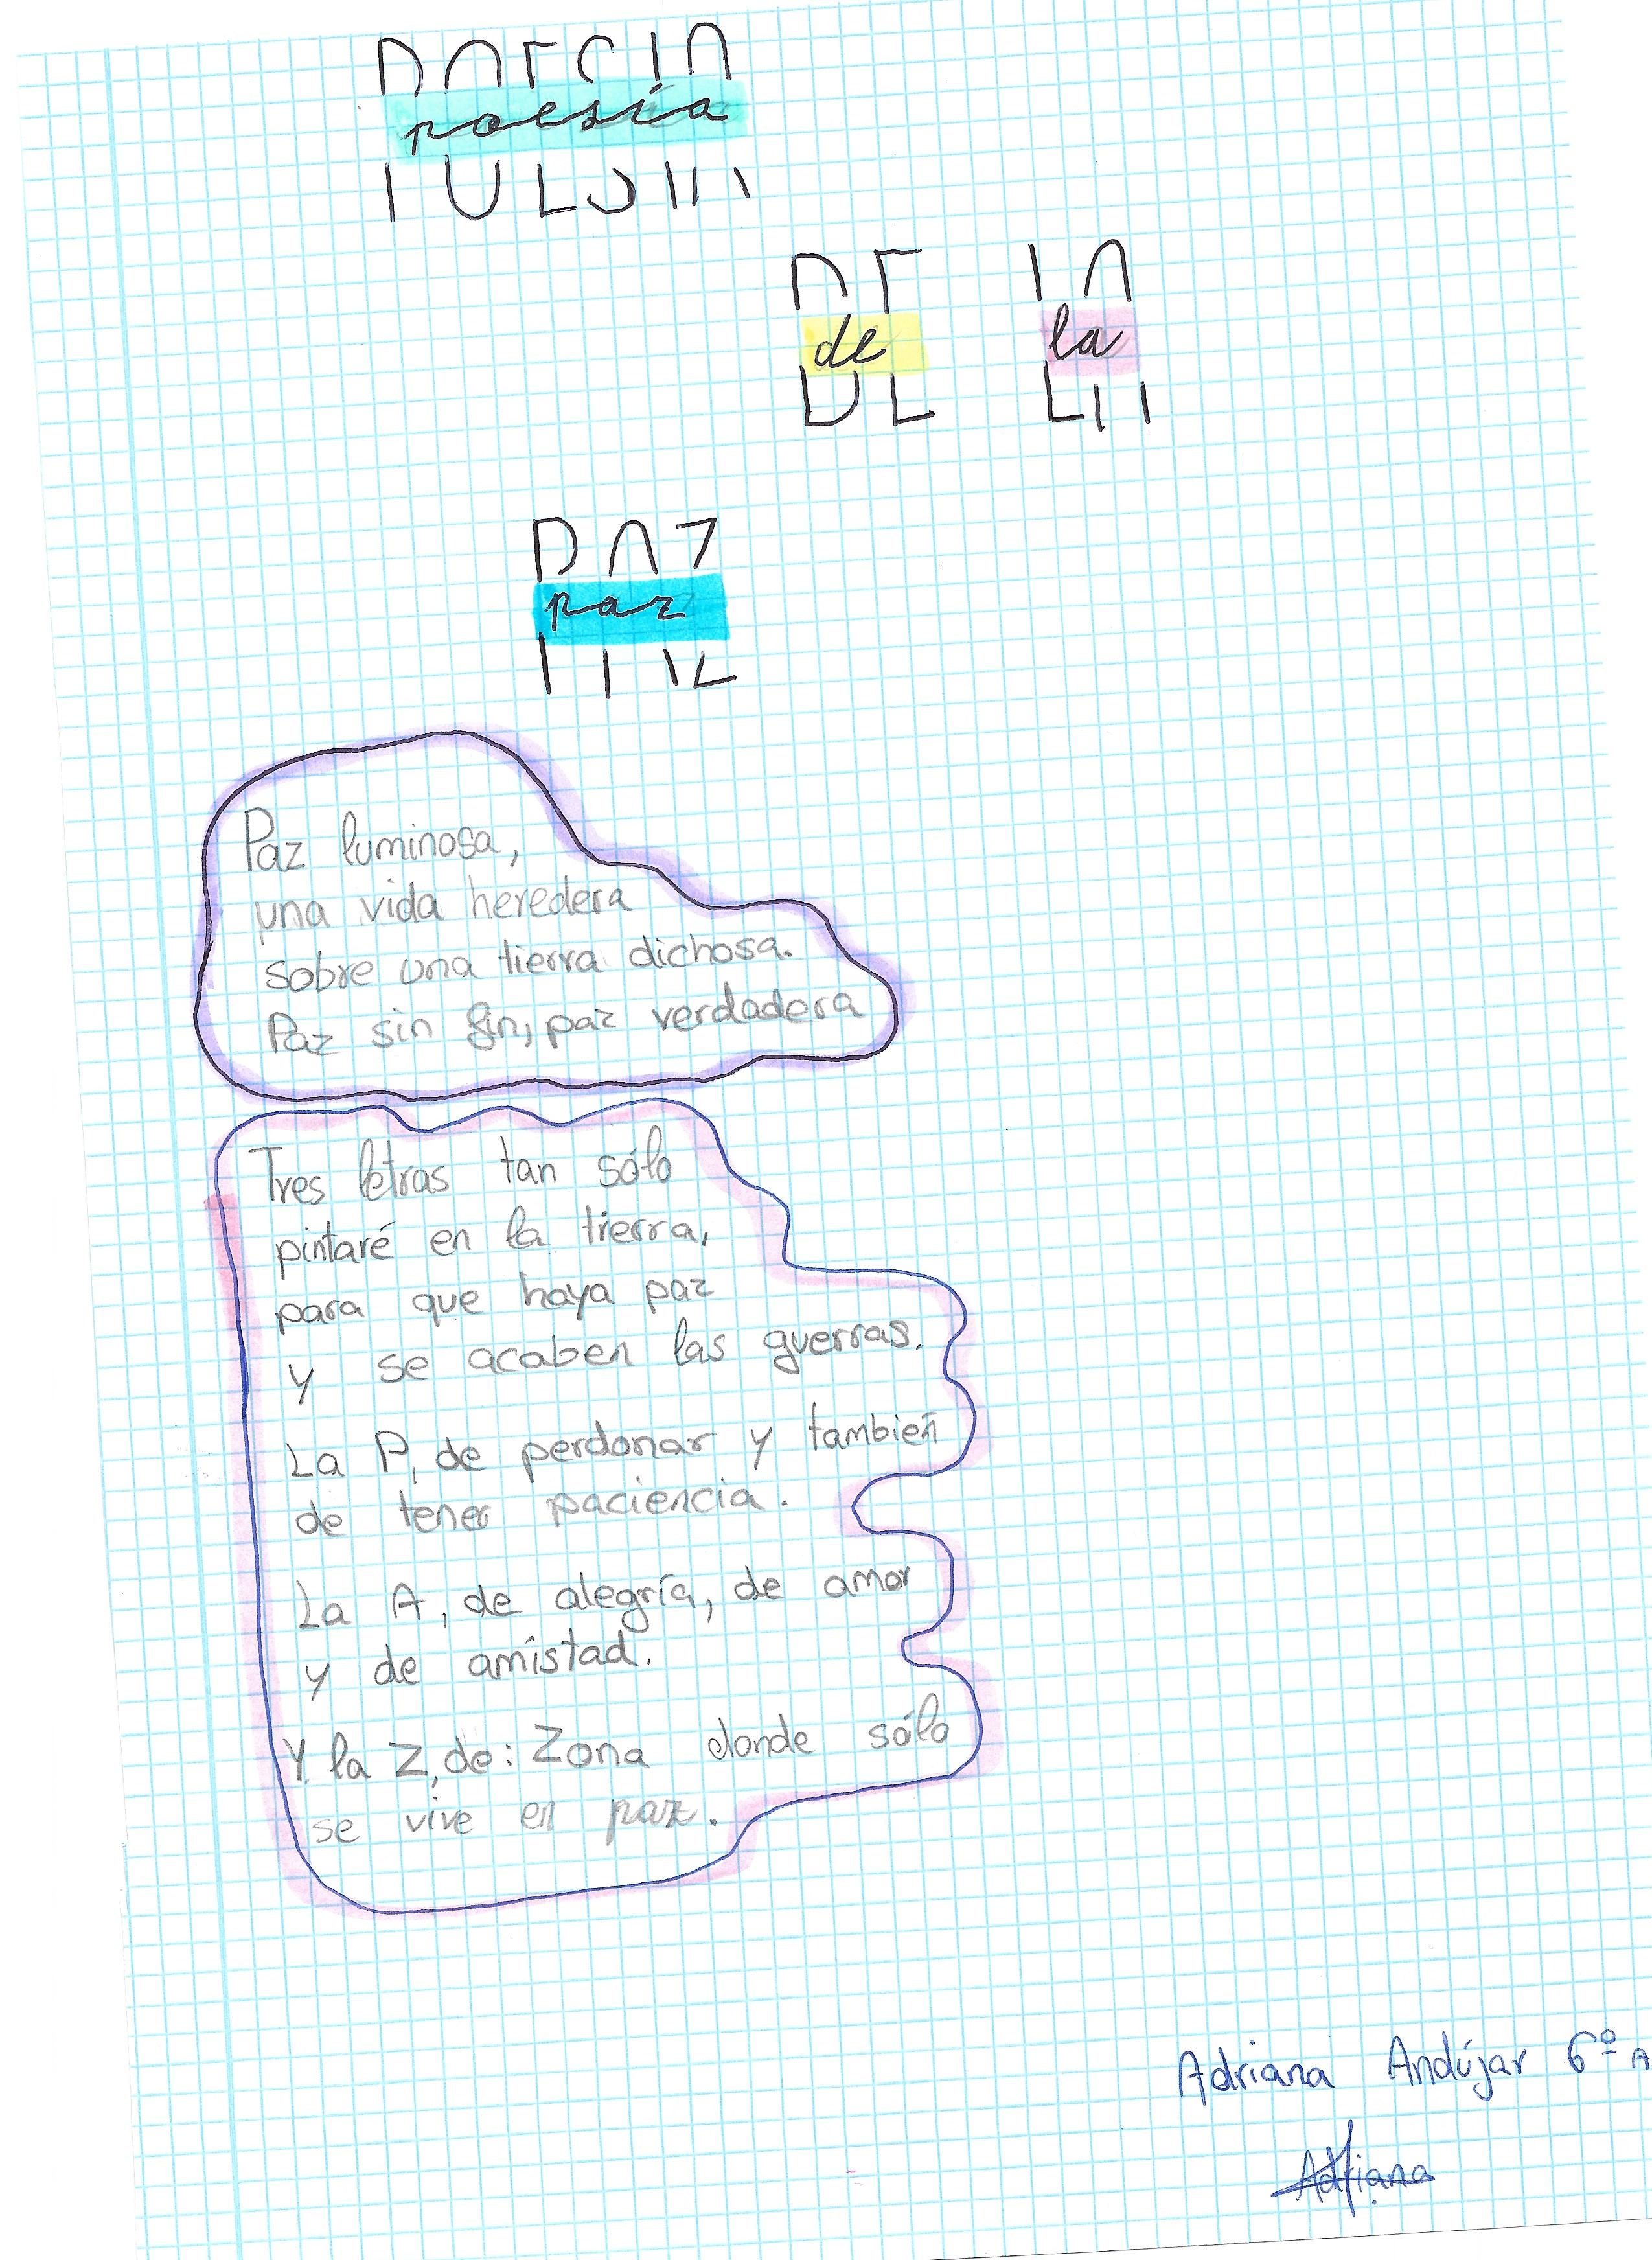 POESIA
poesía
DE LA
de la
PAZ
paz
Paz luminosa,
una vida heredera
sobre una tierra dichosa.
Paz sin fin, paz verdadera
Tres letras tan sólo
pintaré en la tierra,
para que haya paz
y se acaben las guerras.
La P, de perdonar y también
de tener paciencia.
La A, de alegría, de amor
y de amistad.
Y la Z, de: Zona donde sólo
se vive en paz.
Adriana Andújar 6º A
Adriana